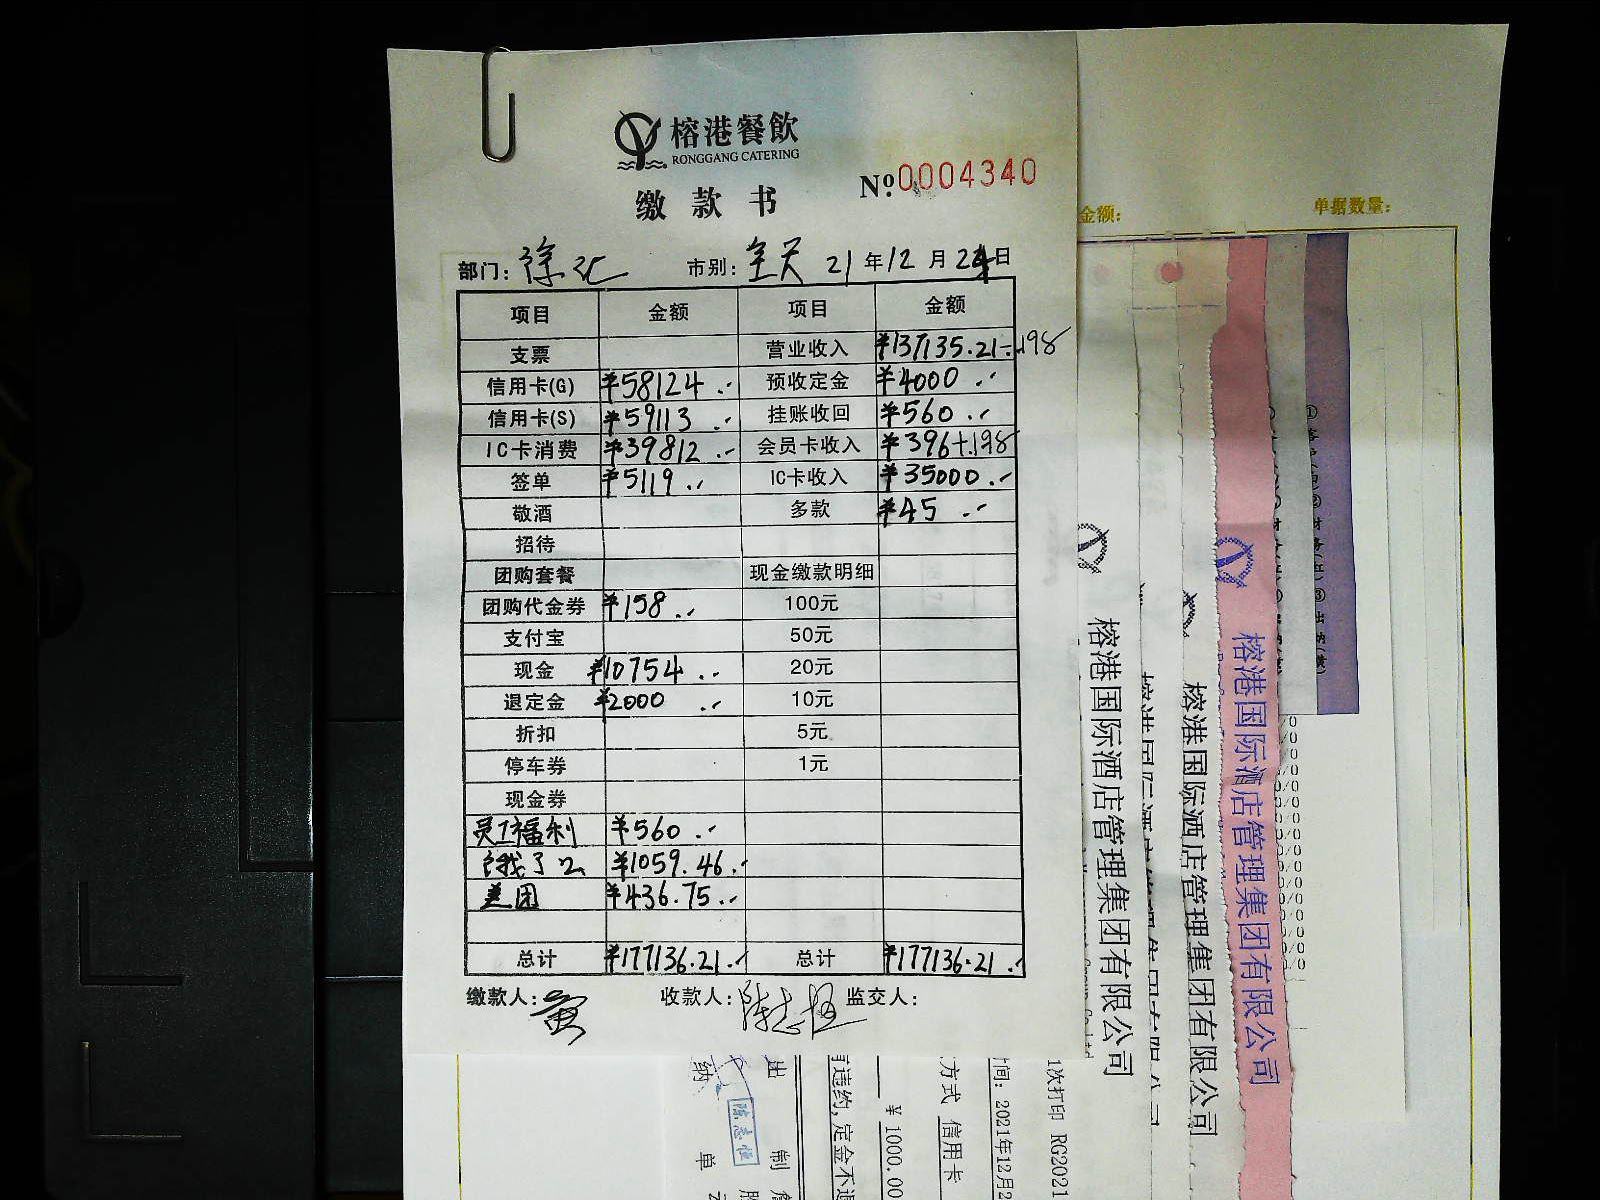 榕港餐飲
RONGGANG CATERING
缴款书
№.0004340
部门: 徐记 市别: 全天 21年12月24日
项目 金额 项目 金额
支票 营业收入 ¥137135.21-198
信用卡(G) ¥58124.- 预收定金 ¥4000.-
信用卡(S) ¥59113.- 挂账收回 ¥560.-
IC卡消费 ¥39812.- 会员卡收入 ¥396+198
签单 ¥5119.- IC卡收入 ¥35000.-
敬酒 多款 ¥45.-
招待
团购套餐 现金缴款明细
团购代金券 ¥158.- 100元
支付宝 50元
现金 ¥10754.- 20元
退定金 ¥2000.- 10元
折扣 5元
停车券 1元
现金券
员工福利 ¥560.-
饿了么 ¥1059.46.-
美团 ¥436.75.-
总计 ¥177136.21.- 总计 ¥177136.21.-
缴款人: 黄 收款人: 陈志恒 监交人:
金额: 单据数量:
榕港国际酒店管理集团有限公司
榕港国际酒店管理集团有限公司
榕港国际酒店管理集团有限公司
1次打印 RG2021
间: 2021年12月2
方式 信用卡
¥ 1000.00
违约,定金不退
出纳
陈志恒
制单